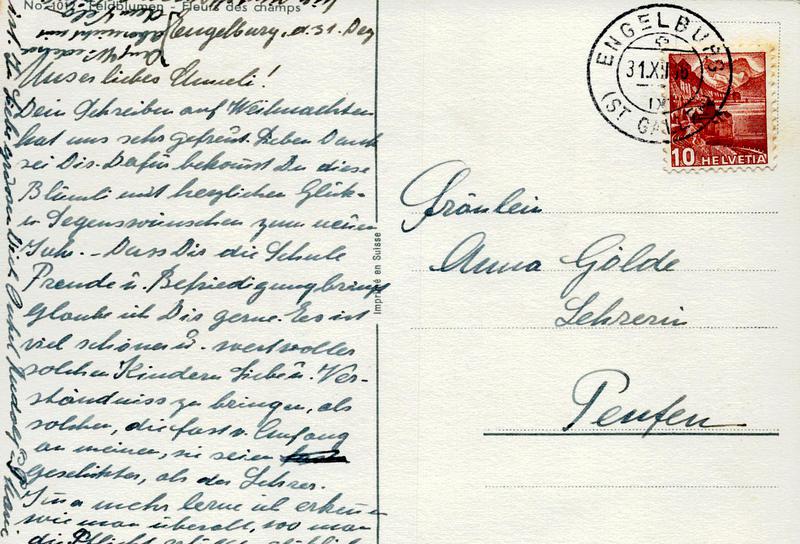 No. 101 - Feldblumen - Fleurs des champs
Engelburg, d. 31. Dez
Unser liebes Anneli!
Dein Schreiben auf Weihnachten
hat uns sehr gefreut. Lieben Dank
sei Dir. Dafür bekommst Du diese
Blümli mit herzlichen Glück-
u Segenswünschen zum neuen
Jahr. - Dass Dir die Schule
Freude u. Befriedigung bringt
glaube ich Dir gerne. Es ist
viel schöner u. wertvoller
solchen Kindern Liebe u. Ver-
ständniss zu bringen, als
solchen, die fast v. Anfang
an meinen, sie seien
geschickter, als der Lehrer.
mehr lerne ich erkennen
wie man überall, wo man
die Pflicht
Auf Wieder
Es grüssen Dich Onkel Rudolf
Imprimé en Suisse
ENGELBURG
31.XII.36
(ST. GALLEN)
10 HELVETIA
Fräulein
Anna Gölde
Lehrerin
Teufen